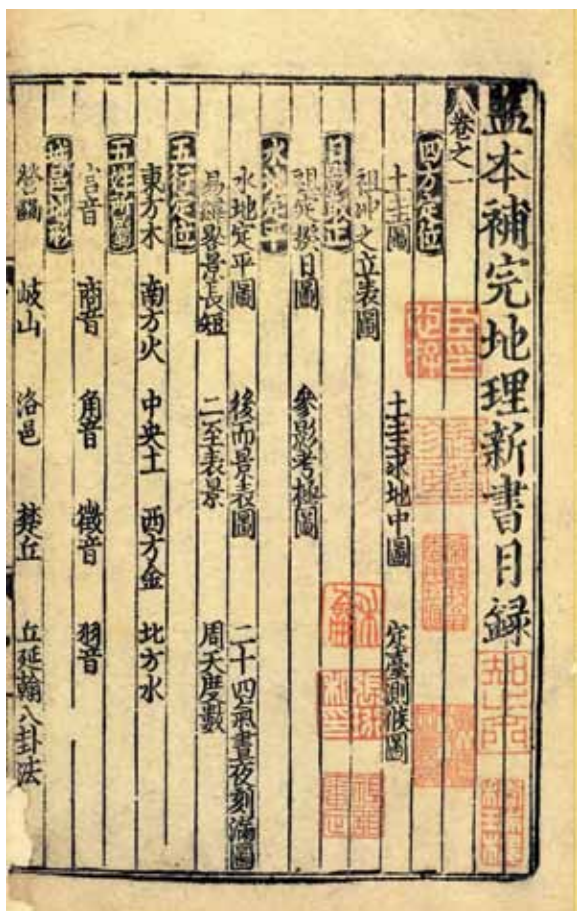 監本補完地理新書目録
卷之一
四方定位
土圭圖 土圭求地中圖 定臺測候圖
祖冲之立表圖
日景取正
揆日圖 參影考極圖
水地定平
水地定平圖 後而景表圖 二十四氣晝夜刻漏圖
易緯晷景長短 二至表景 周天度數
五行定位
東方木 南方火 中央土 西方金 北方水
五姓所屬
宮音 商音 角音 徵音 羽音
城邑地形
岐山 洛邑 丘延翰八卦法